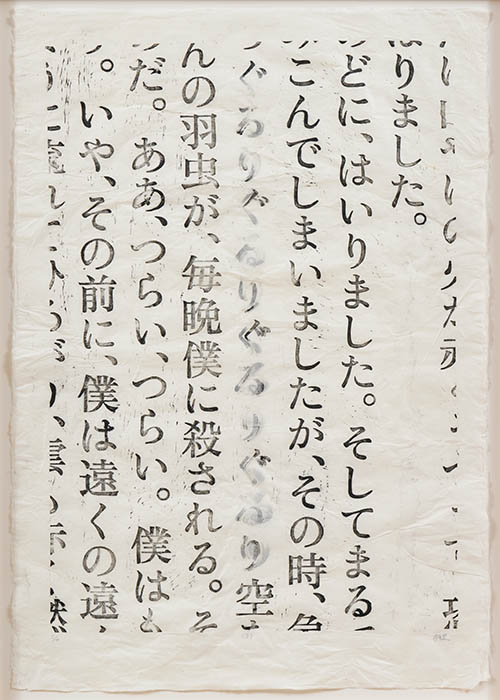 りました。
どに、はいりました。そしてまる
こんでしまいましたが、その時、
ぐるりぐるりぐるりぐるり空
んの羽虫が、毎晩僕に殺される。そ
だ。ああ、つらい、つらい。僕はも
。いや、その前に、僕は遠くの遠